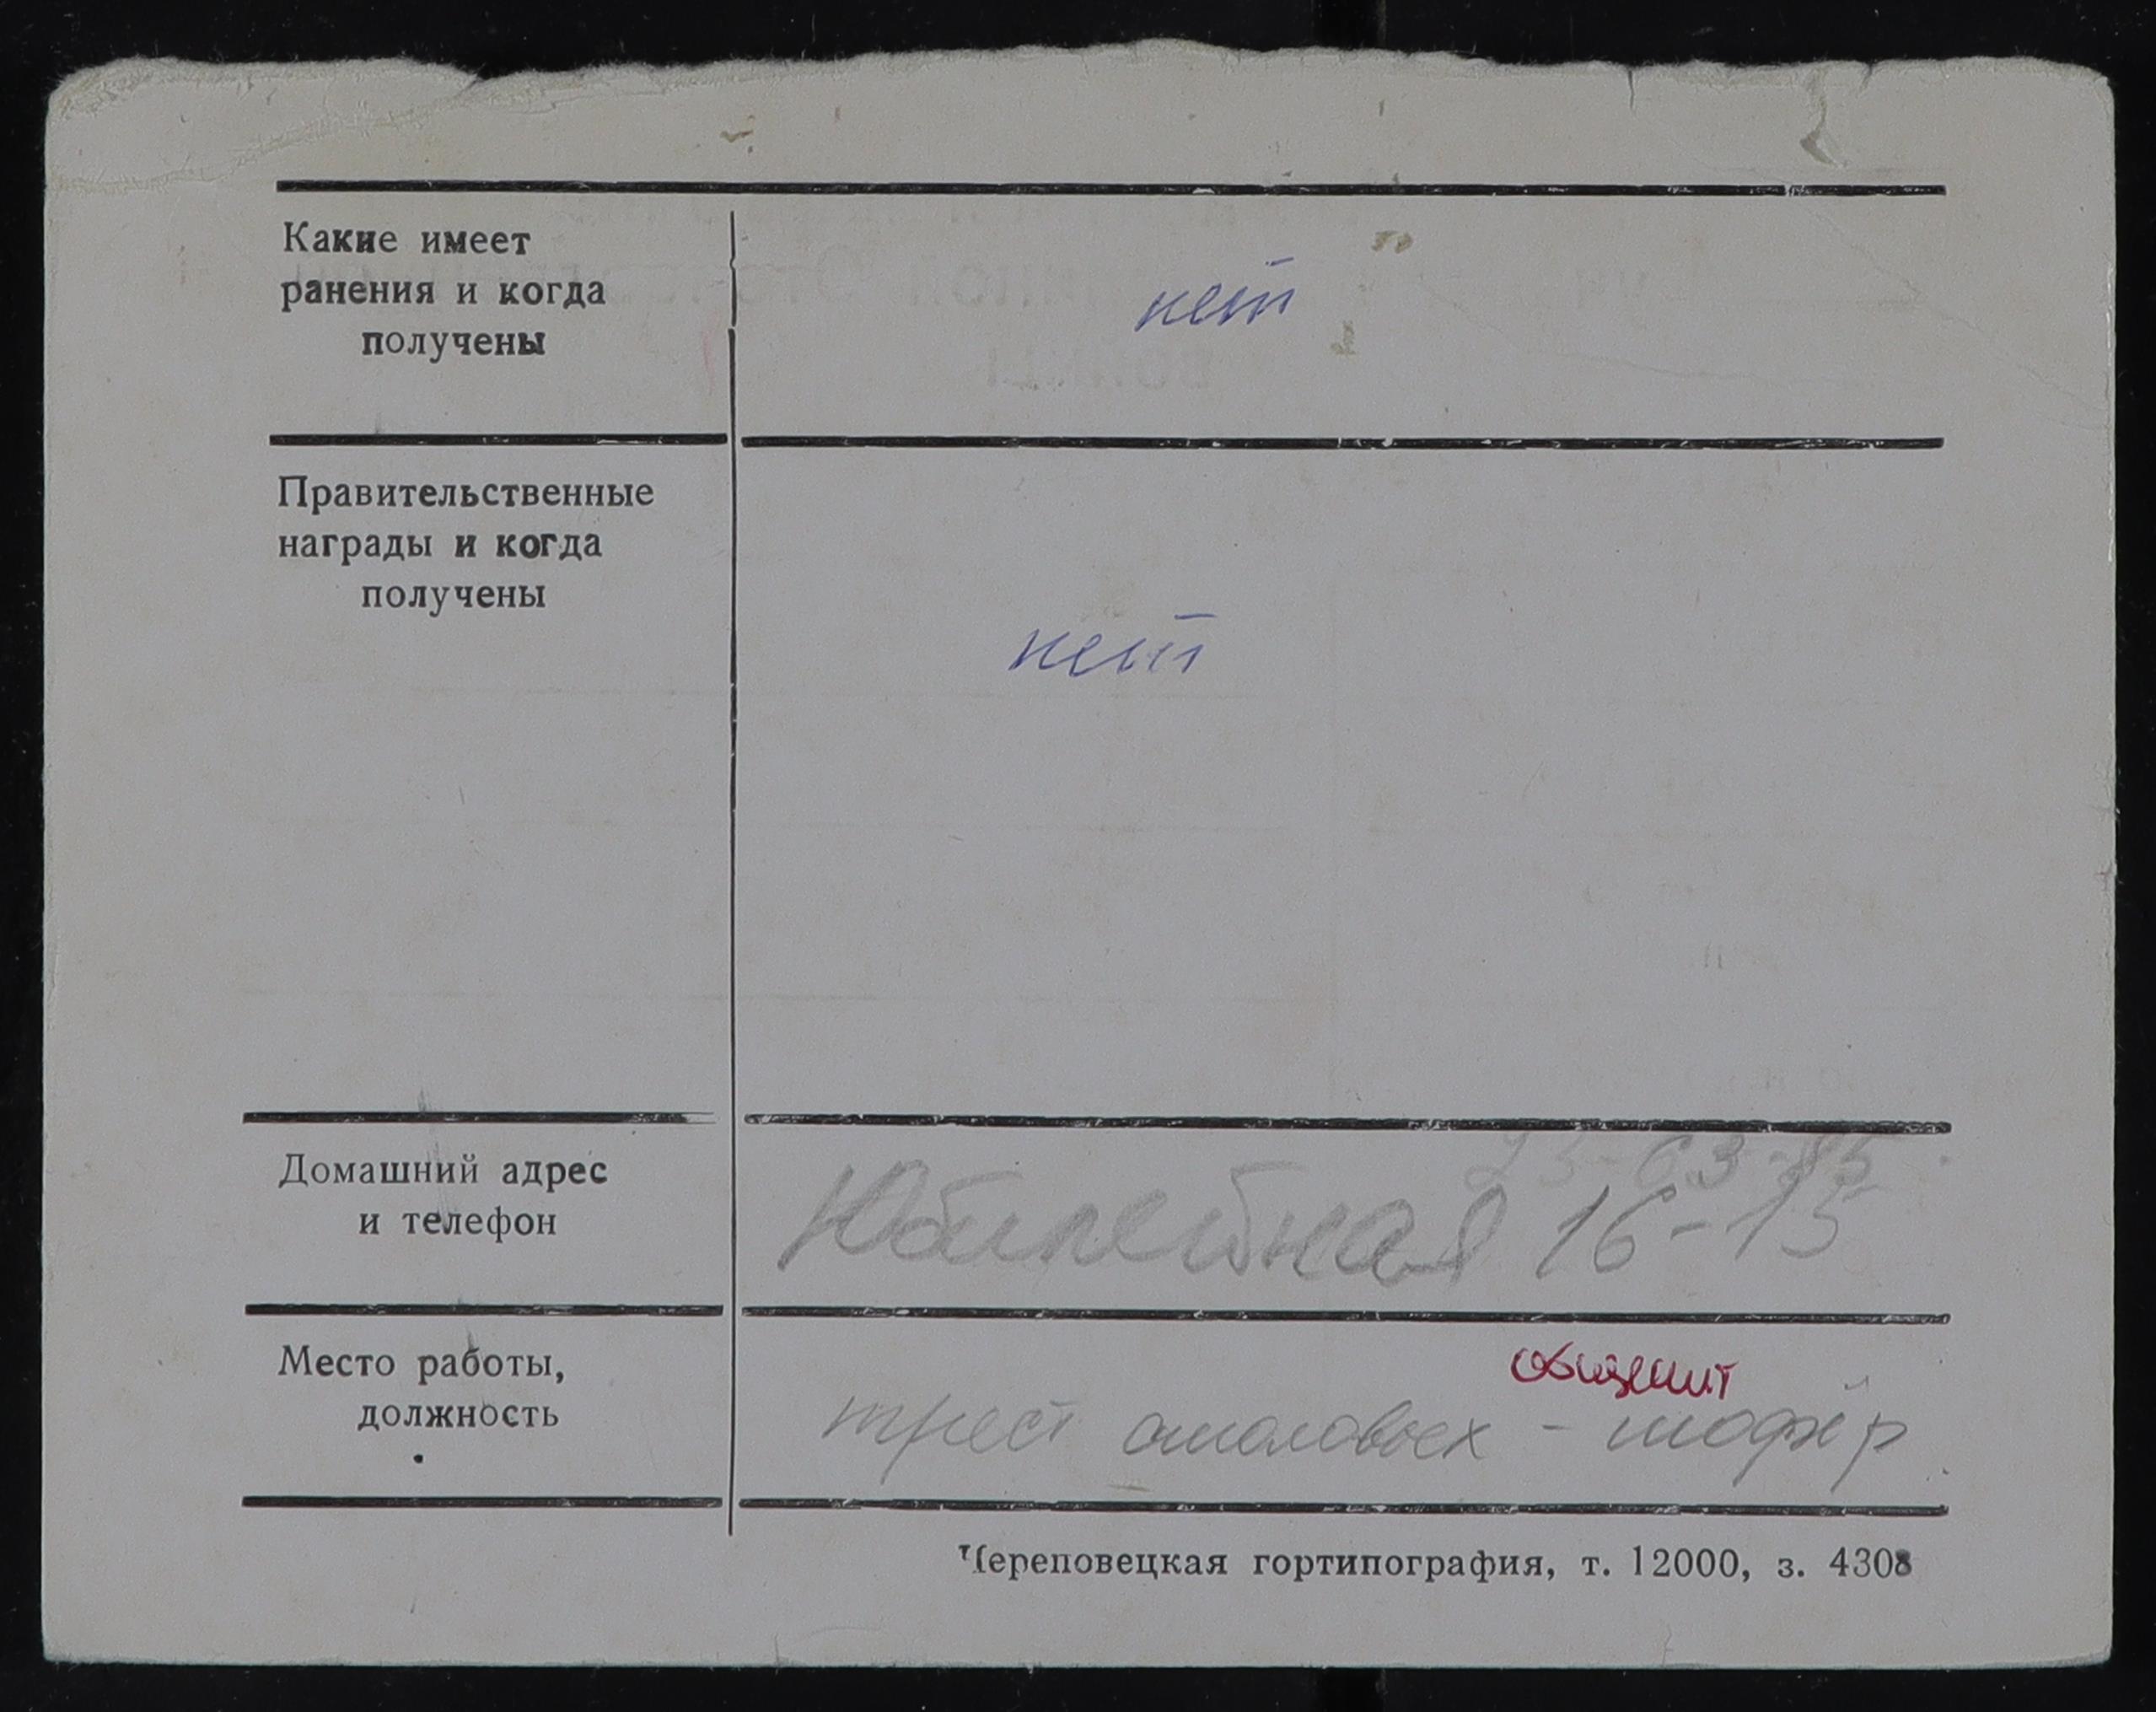 Какие имеет
ранения и когда
получены
нет
Правительственные
награды и когда
получены
нет
Домашний адрес
и телефон
23-63-85
Юбилейная 16-15
Место работы,
должность
общепит
трест столовых - шофёр
Череповецкая гортипография, т. 12000, з. 4308